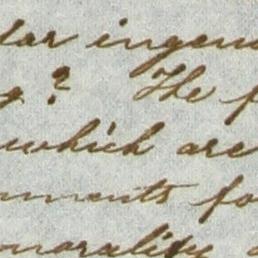 lar ingenu
g? The f
which are
ments fo
morality a